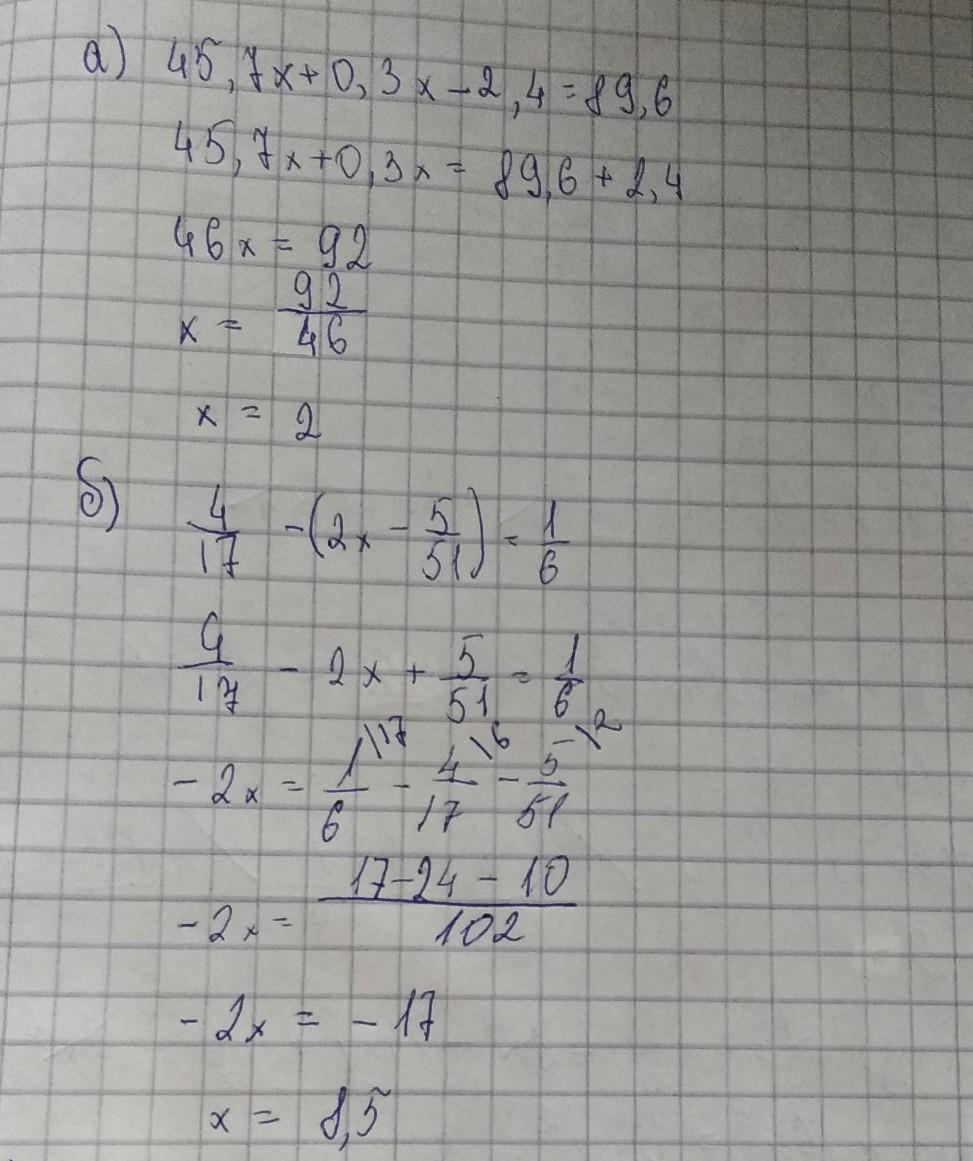 а) 45,7x+0,3x-2,4=89,6
45,7x+0,3x= 89,6+2,4
46x = 92
x = 92/46
x = 2
б) 4/17 -(2x - 5/51) = 1/6
4/17 - 2x + 5/51 = 1/6
-2x = 1/6 \17 - 4/17 \6 - 5/51 \2
-2x = 17-24-10/102
-2x = -17
x = 8,5